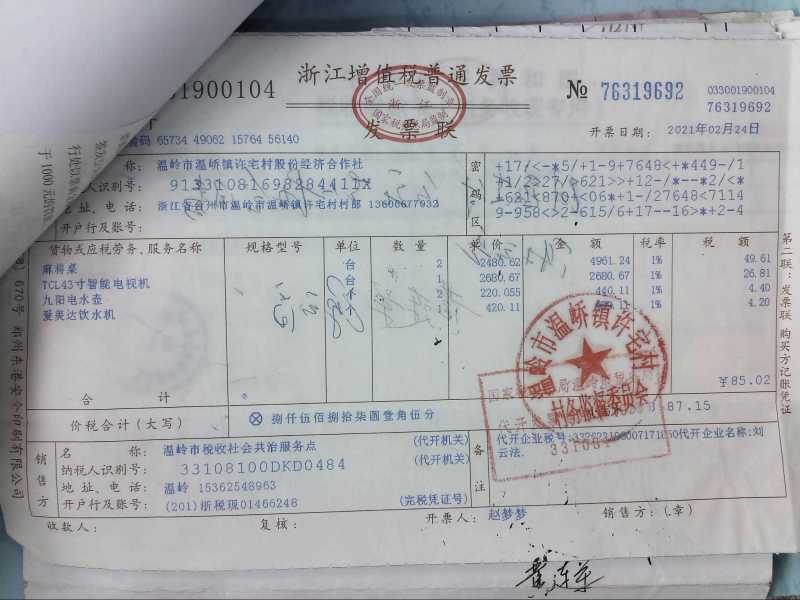 1900104
浙江增值税普通发票
№ 76319692
033001900104
76319692
全国统一发票监制章
浙江
国家税务总局监制
发票联
开票日期：2021年02月24日
65734 49062 15764 56140
称：温岭市温峤镇许宅村股份经济合作社
人识别号：91331081698284411X
地址、电话：浙江省台州市温岭市温峤镇许宅村村部 13606677932
开户行及账号：
密码区
+17/<-*5/+1-9+7648<+*449-/1
+1/2>27/>621>>+12-/**-*2/<*
+621<870+<06*+1-/27648<7114
9-958<>2-615/6+17--16>*+2-4
货物或应税劳务、服务名称 规格型号 单位 数量 单价 金额 税率 税额
麻将桌 台 2 2480.62 4961.24 1% 49.61
TCL43寸智能电视机 台 1 2680.67 2680.67 1% 26.81
九阳电水壶 2 220.055 440.11 1% 4.40
爱美达饮水机 1 420.11 1% 4.20
合计
¥85.02
价税合计（大写） ⊗捌仟伍佰捌拾柒圆壹角伍分
87.15
温岭市温峤镇许宅村
村务监督委员会
销售方
名称：温岭市税收社会共治服务点 (代开机关)
纳税人识别号：33108100DKD0484 (代开机关)
地址、电话：温岭 15362548963
开户行及账号：(201)浙税现01466248 (完税凭证号)
备注
代开企业名称:刘
云法.
收款人：
复核：
开票人：赵梦梦
销售方：(章)
第二联：发票联 购买方记账凭证